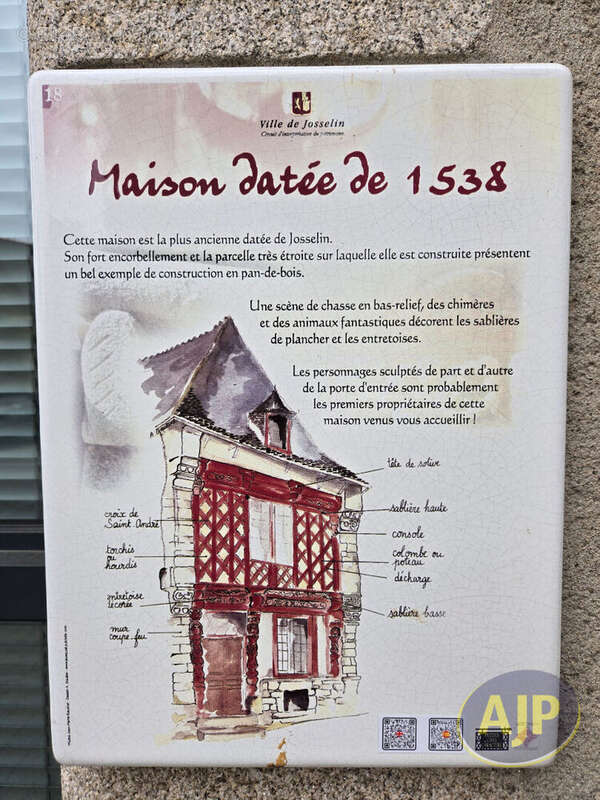 18
Ville de Josselin
Circuit d'interprétation du patrimoine
Maison datée de 1538
Cette maison est la plus ancienne datée de Josselin.
Son fort encorbellement et la parcelle très étroite sur laquelle elle est construite présentent
un bel exemple de construction en pan-de-bois.
Une scène de chasse en bas-relief, des chimères
et des animaux fantastiques décorent les sablières
de plancher et les entretoises.
Les personnages sculptés de part et d'autre
de la porte d'entrée sont probablement
les premiers propriétaires de cette
maison venus vous accueillir !
tête de solive
croix de
Saint André
sablière haute
console
torchis
ou
hourdis
colombe ou
poteau
décharge
entretoise
décorée
sablière basse
mur
coupe feu
AIP